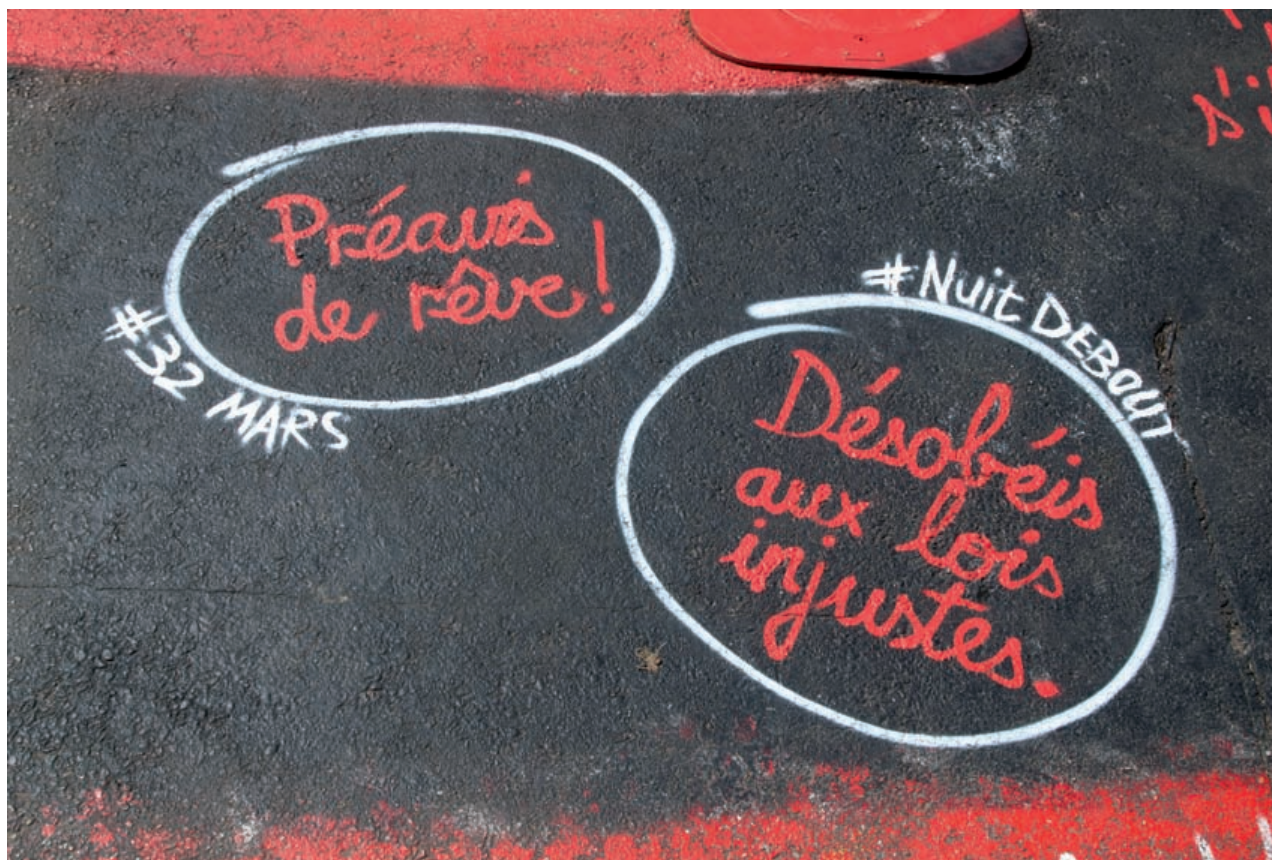 Préavis
de rêve!
#32 MARS
#Nuit DEBOUT
Désobéis
aux lois
injustes.